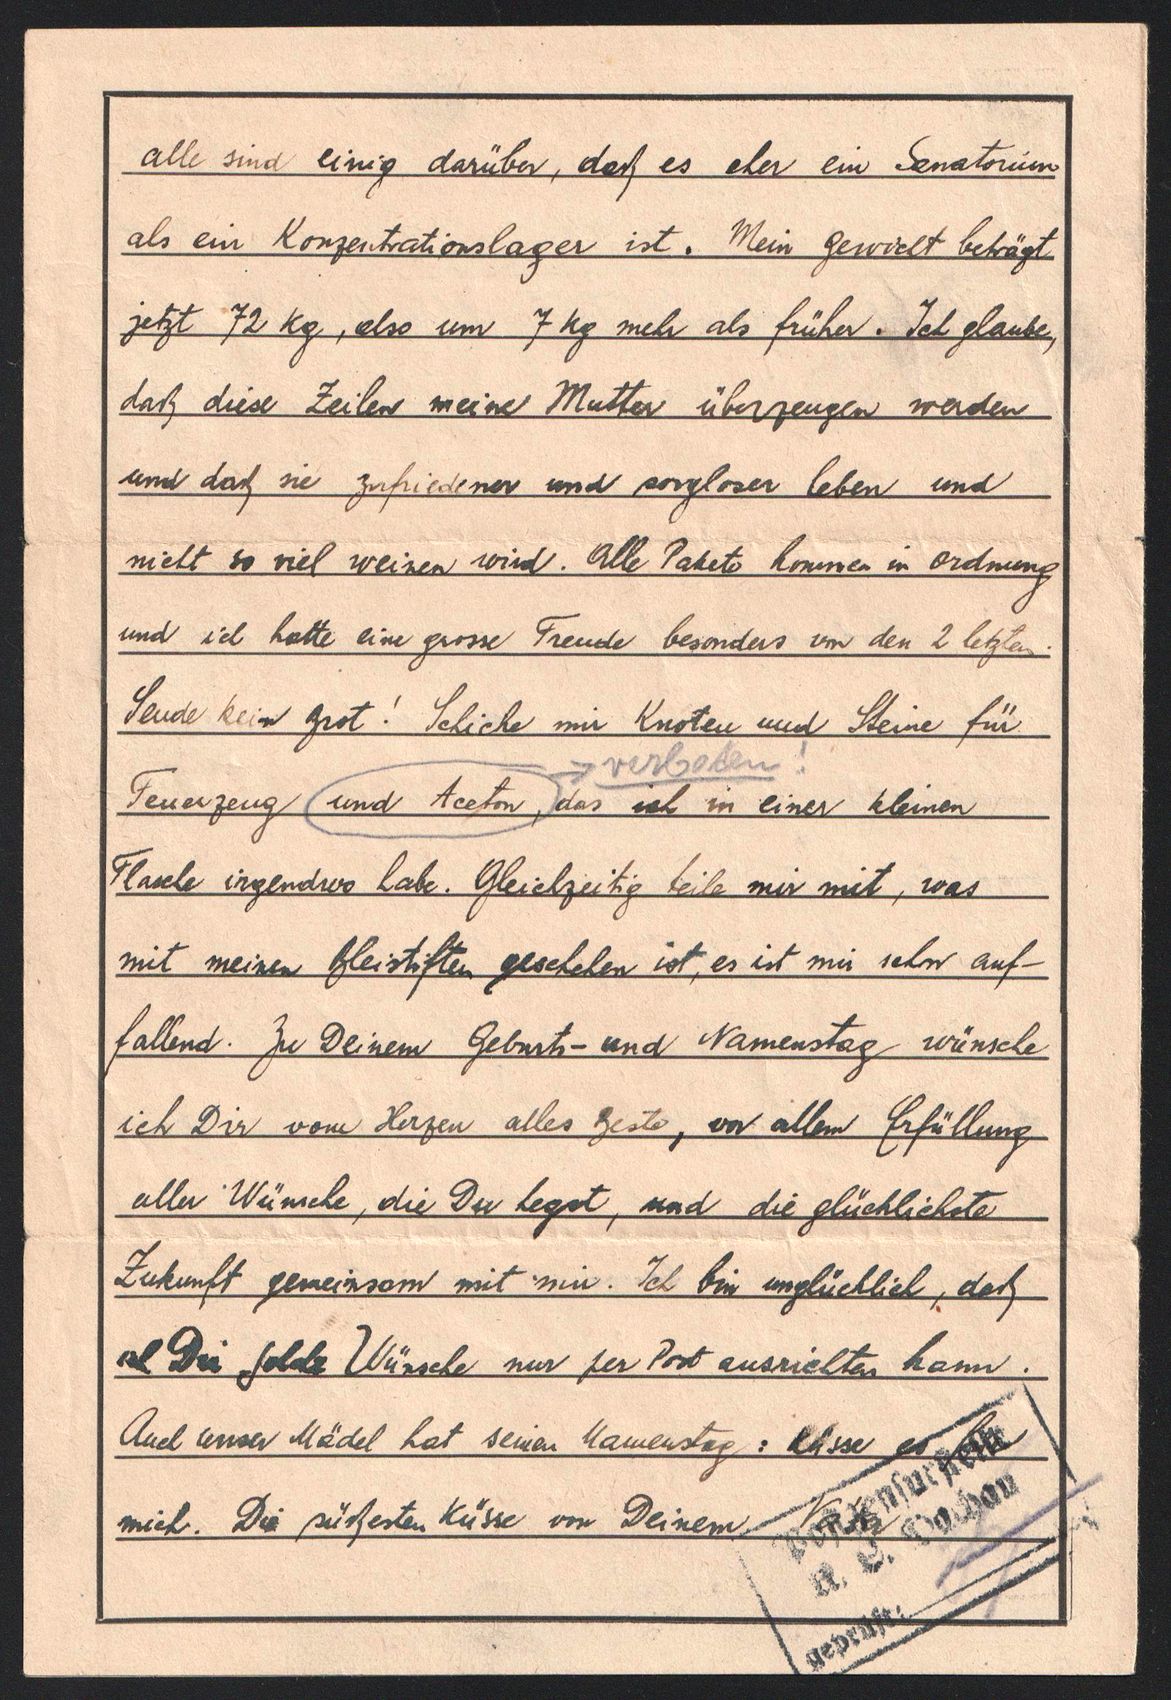 alle sind einig darüber, daß es eher ein Sanatorium
als ein Konzentrationslager ist. Mein Gewicht beträgt
jetzt 72 kg, also um 7 kg mehr als früher. Ich glaube,
daß diese Zeilen meine Mutter überzeugen werden
und daß sie zufriedener und sorgloser leben und
nicht so viel weinen wird. Alle Pakete kommen in Ordnung
und ich hatte eine grosse Freude besonders von den 2 letzten.
Sende kein Brot! Schicke mir Knoten und Steine für
verboten!
Feuerzeug und Aceton, das ich in einer kleinen
Flasche irgendwo habe. Gleichzeitig teile mir mit, was
mit meinen Bleistiften geschehen ist, es ist mir sehr auf-
fallend. Zu Deinem Geburts- und Namenstag wünsche
ich Dir vom Herzen alles Beste, vor allem Erfüllung
aller Wünsche, die Du hegst, und die glücklichste
Zukunft gemeinsam mit mir. Ich bin unglücklich, daß
ich Dir solche Wünsche nur per Post ausrichten kann.
Auch unser Mädel hat seinen Namenstag: küsse es für
mich. Die süßesten Küsse von Deinem
Postzensurstelle
K. L. Dachau
geprüft: